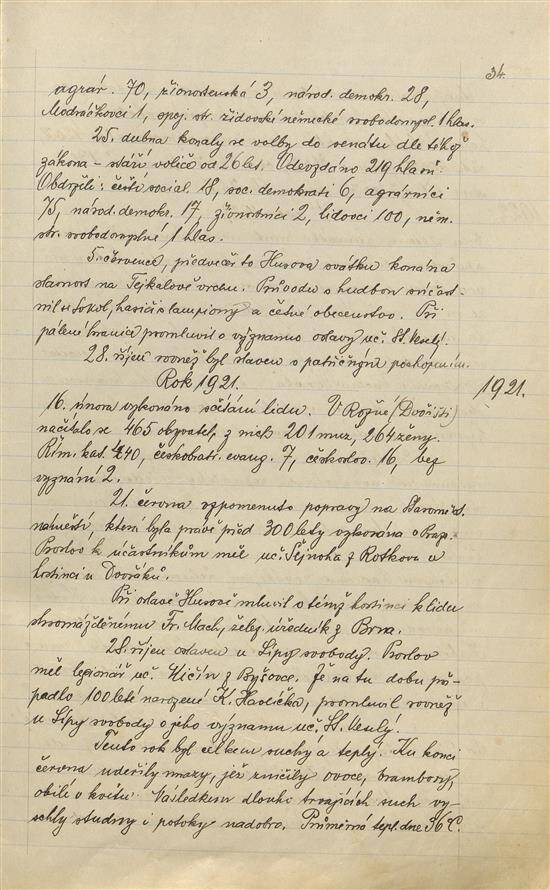 34.
agrár. 70, živnostenská 3, národ. demokr. 28,
Modráčkovci 1, spoj. str. židovské německé svobodomysl. 1 hlas.
25. dubna konaly se volby do senátu dle téhož
zákona – stáří voličů od 26 let. Odevzdáno 219 hlasů.
Obdrželi: čeští social. 18, soc. demokrati 6, agrárníci
75, národ. demokr. 17, živnostníci 2, lidovci 100, něm.
str. svobodomyslné 1 hlas.
5. července, předvečer to Husova svátku konána
slavnost na Tejkalově vrchu. Průvodu s hudbou súčast-
nil se Sokol, hasiči s lampiony a četné obecenstvo. Při
pálení hranice promluvil o významu oslavy uč. St. Veselý.
28. říjen rovněž byl slaven s patřičným pochopením.
Rok 1921.
1921.
16. února vykonáno sčítání lidu. V Rožné (Dvořišti)
načítalo se 465 obyvatel, z nich 201 muž, 264 ženy.
Řím. kat. 440, českobratr. evang. 7, českoslov. 16, bez
vyznání 2.
21. června vzpomenuto popravy na Staroměst.
náměstí, která byla právě před 300 lety vykonána v Praze.
Proslov k účastníkům měl uč. Sejnoha z Rotkova v
hostinci u Dvořáků.
Při oslavě Husově mluvil v témž hostinci k lidu
shromážděnému Fr. Mach, želez. úředník z Brna.
28. říjen oslaven u Lípy svobody. Proslov
měl legionář uč. Kičín z Byšovce. Že na tu dobu při-
padlo 100leté narozené K. Havlíčka, promluvil rovněž
u Lípy svobody o jeho významu uč. St. Veselý.
Tento rok byl celkem suchý a teplý. Ku konci
června udeřily mrazy, jež zničily ovoce, brambory,
obilí v květu. Následkem dlouho trvajících such vy-
schly studny i potoky nadobro. Průměrná tepl. dne 36°C.